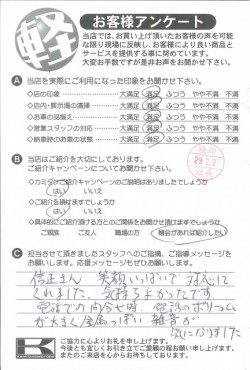 軽
お客様アンケート
当店では、お買い上げ頂いたお客様の声を可能
な限り現場に反映し、お客様により良い商品と
サービスを提供する事に努めています。
大変お手数ですが是非お声をお聞かせ下さい。
A 当店を実際にご利用になった印象をお聞かせ下さい。
◇店の印象 大満足 満足 ふつう やや不満 不満
◇店内・展示場の清掃 大満足 満足 ふつう やや不満 不満
◇お車の品揃え 大満足 満足 ふつう やや不満 不満
◇営業スタッフの対応 大満足 満足 ふつう やや不満 不満
◇納車時のお車の状態 大満足 満足 ふつう やや不満 不満
B 当店はご紹介を大切にしております。
ご紹介キャンペーンについてお聞かせ下さい。
◇カミタケご紹介キャンペーンのご説明はありましたでしょうか
はい いいえ
◇ご紹介を頂けますでしょうか
はい いいえ
◇具体的にご紹介頂ける方とのご関係をお聞かせ頂けますでしょうか
ご親族 ご友人 職場の方 機会があれば紹介したい
C 担当させて頂きましたスタッフへのご指摘、ご指導メッセージを
お願いします。応援メッセージもぜひお願いします。
笑顔いっぱいで 対応して
くれました。気持ちよかったです
電話での問合せ時、電話のボリューム
が大きく金属っぽい 雑音が
気になりました
K
ご協力に心よりお礼を申し上げます。
今後とも宜しくお引き立てご愛顧の程お願い申し上げます。
またのご来店を心からお待ちしております。